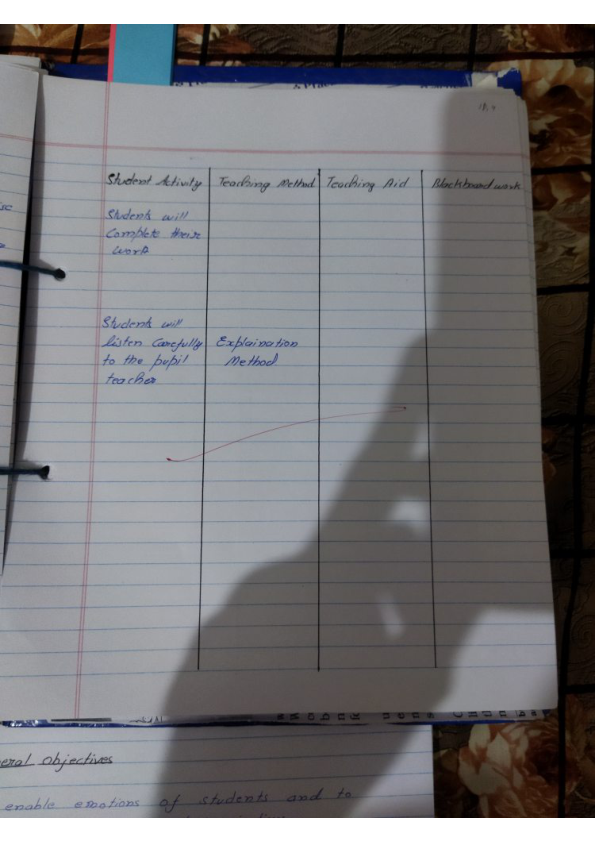 Student Activity Teaching Method Teaching Aid Blackboard work
Students will
Complete their
work
Students will
listen Carefully Explaination
to the pupil Method
teacher
eral Objectives
enable emotions of students and to